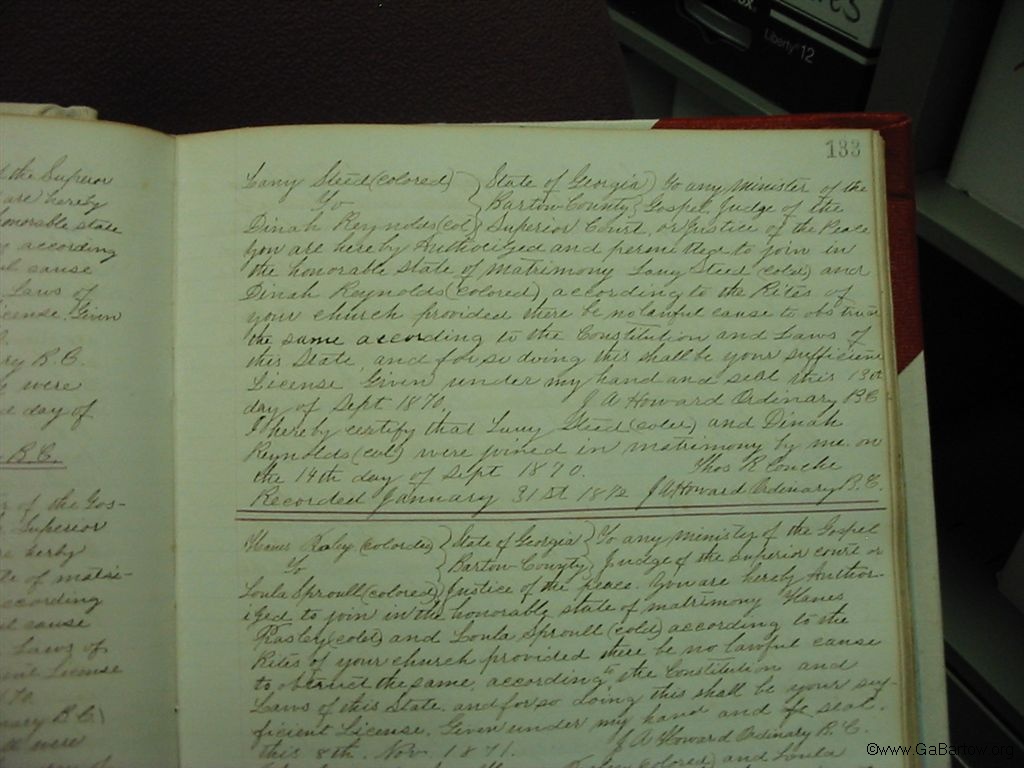 Liberty 12
133
the Superior
are hereby
honorable state
according
cause
Laws of
License. Given
B.C.
were
day of
B.C.
of the Gos-
Superior
herby
of matri-
according
cause
Laws of
License
B C)
were
Lany Steed (colored) } State of Georgia } To any Minister of the
To } Bartow County } Gospel, Judge of the
Dinah Reynolds (col) } Superior Court, or Justice of the Peace
you are hereby Authorized and permitted to join in
the honorable state of matrimony Lany Steed (colod) and
Dinah Reynolds (colored), according to the Rites of
your church provided there be no lawful cause to obstruct
the same according to the Constitution and Laws of
this State, and for so doing this shall be your sufficient
License Given under my hand and seal this 13th
day of Sept 1870. J A Howard Ordinary B C
I hereby certify that Lany Steed (colod) and Dinah
Reynolds (col) were joined in matrimony by me on
the 14th day of Sept 1870. Thos R Couche
Recorded January 31st 1872 J A Howard Ordinary B.C.
(colored) } State of Georgia } To any minister of the Gospel
To } Bartow County } Judge of the superior court or
Loula Sproull (colored) } Justice of the peace. You are hereby Author-
ized to join in the honorable state of matrimony Hanes
Rasley (cold) and Loula Sproull (cold) according to the
Rites of your church provided there be no lawful cause
to obstruct the same, according to the Constitution and
Laws of this State. and for so doing this shall be your suf-
ficient License. Given under my hand and seal.
this 8th. Nov 1871. J A Howard Ordinary B.C.
(colored) and Loula
©www.GaBartow.org